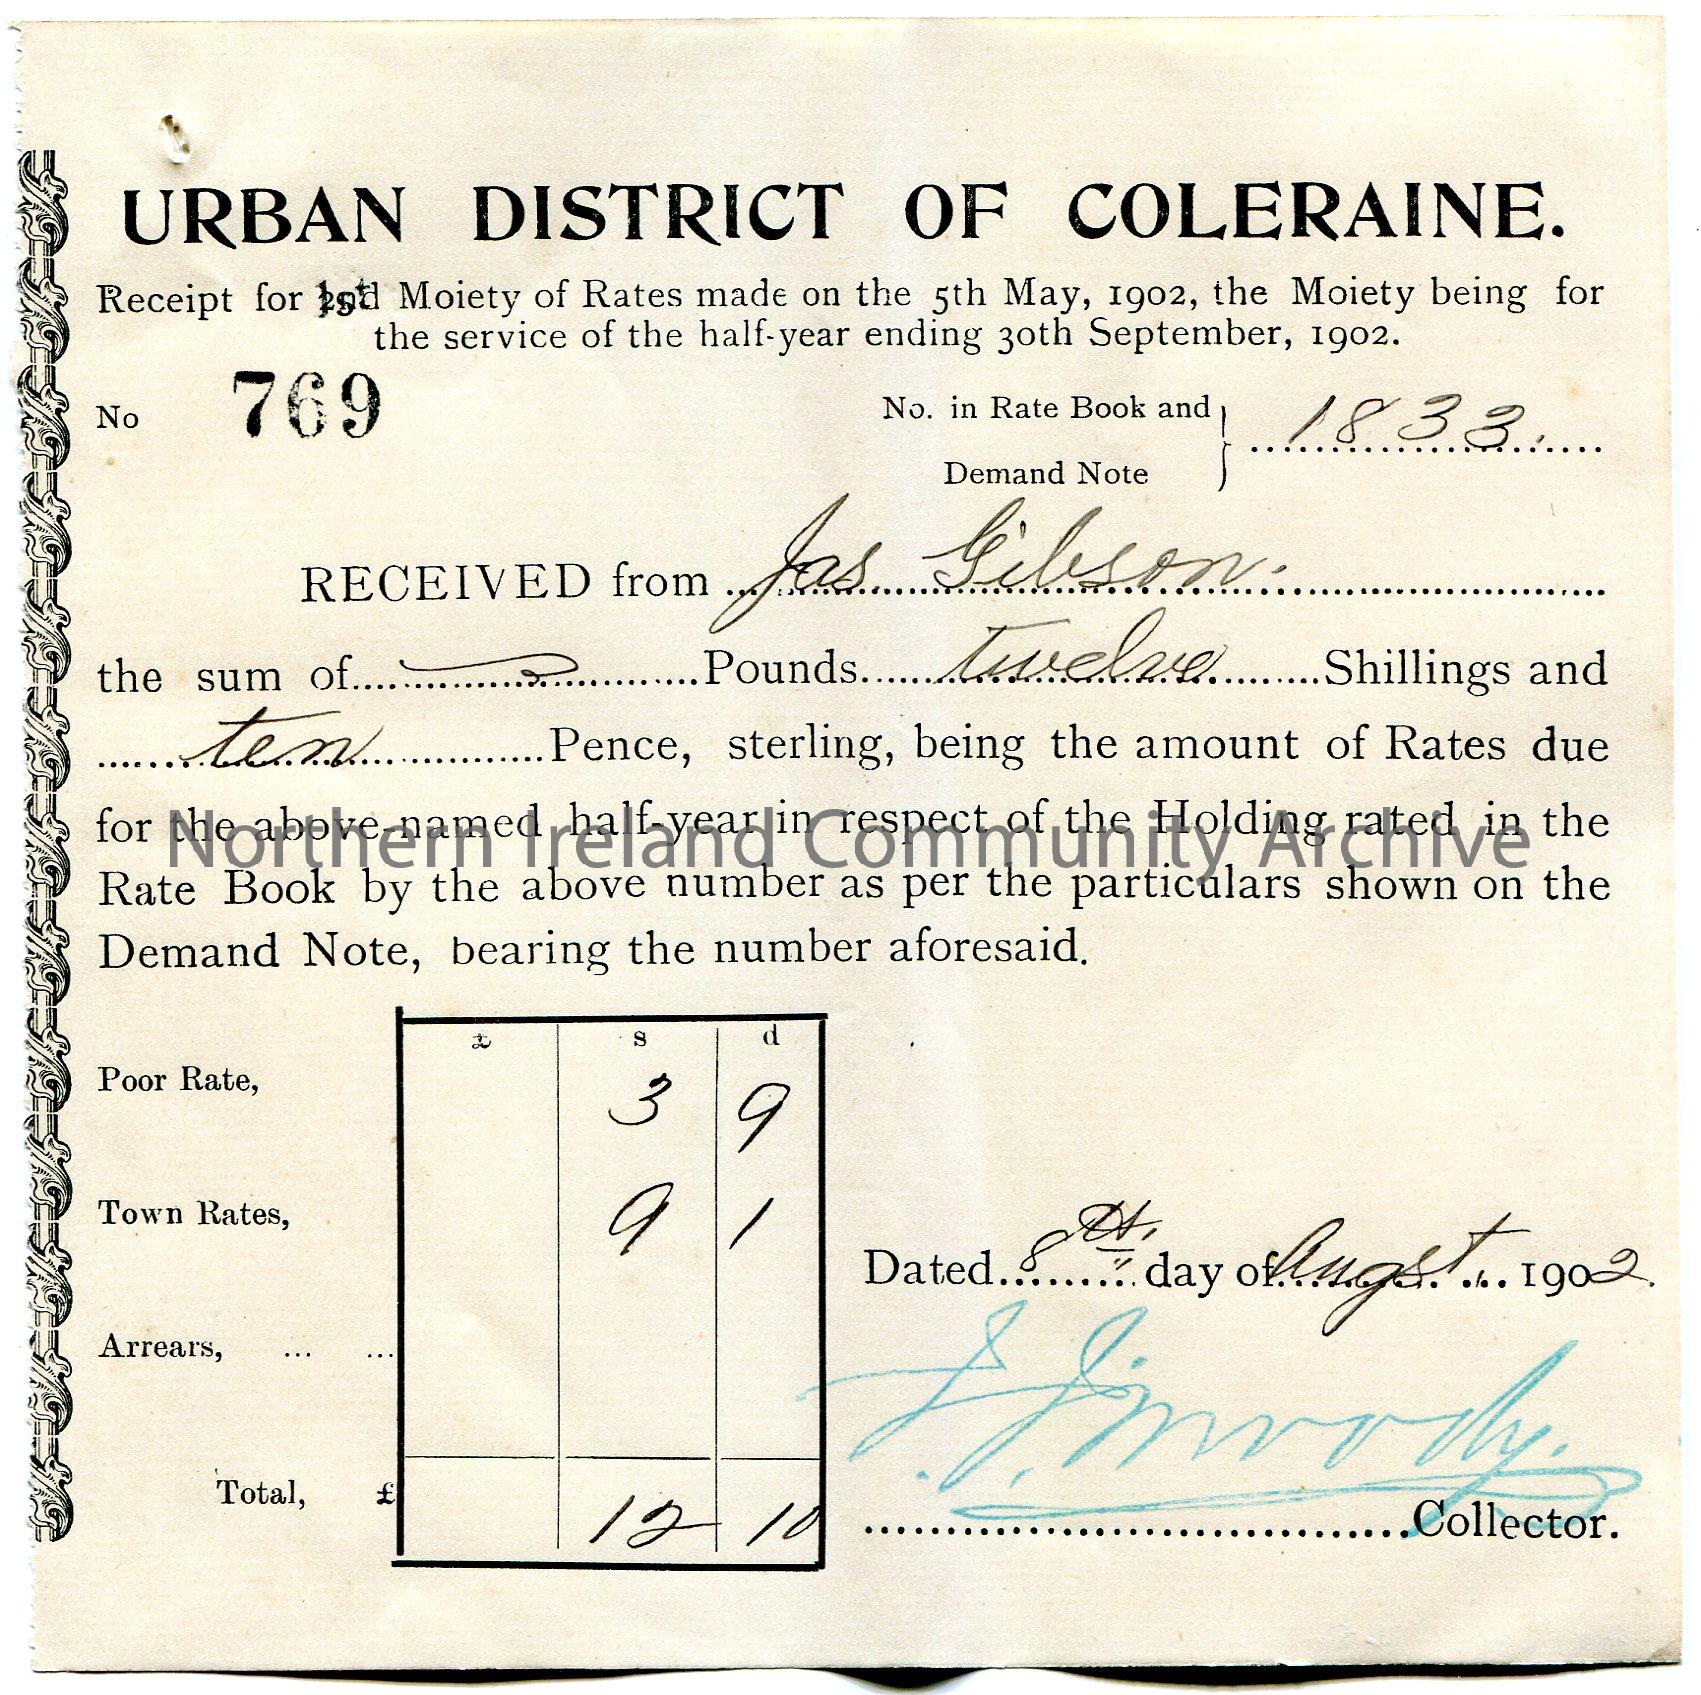 URBAN DISTRICT OF COLERAINE.
Receipt for 1st Moiety of Rates made on the 5th May, 1902, the Moiety being for
the service of the half-year ending 30th September, 1902.
No 769
No. in Rate Book and
Demand Note } 1833.
RECEIVED from Jas Gibson.
the sum of Pounds twelve Shillings and
ten Pence, sterling, being the amount of Rates due
for the above-named half-year in respect of the Holding rated in the
Northern Ireland Community Archive
Rate Book by the above number as per the particulars shown on the
Demand Note, bearing the number aforesaid.
£ s d
Poor Rate, 3 9
Town Rates, 9 1
Dated 8th day of Augst 1902.
Arrears, ... ...
Moody.
Total, £ 12 10
Collector.